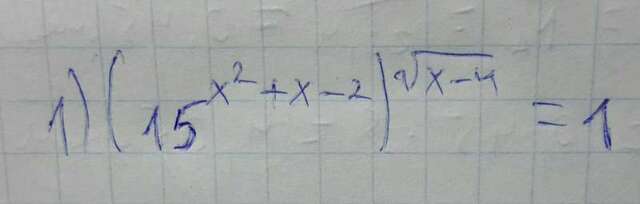 1) (15^{x^2+x-2})^{\sqrt{x-4}} = 1